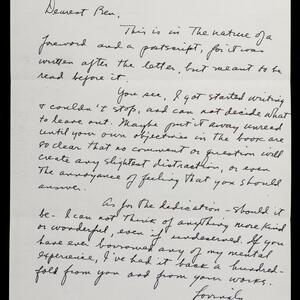 Dearest Bev.
This is in the nature of a
foreword and a postscript, for it was
written after the letter, but meant to be
read before it.
You see, I got started writing
& couldn't stop, and can not decide what
to leave out. Maybe put it away unread
until your own objectives in the book are
so clear that no comment or question will
create any slightest distraction, or even
the annoyance of feeling that you should
answer.
As for the dedication - should it
be - I can not think of anything more kind
or wonderful, even if undeserved. If you
have ever borrowed any of my mental
experience, I've had it back a hundred-
fold from you and from your works.